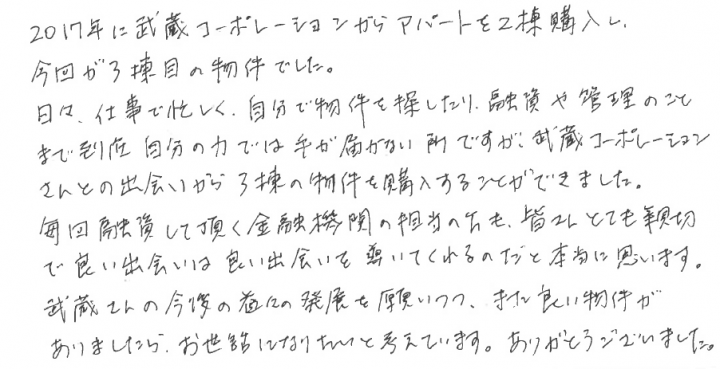 2017年に武蔵コーポレーションからアパートを2棟購入し、
今回が3棟目の物件でした。
日々、仕事で忙しく、自分で物件を探したり、融資や管理のこと
まで到底自分の力では手が届かない所ですが、武蔵コーポレーション
さんとの出会いから3棟の物件を購入することができました。
毎回融資して頂く金融機関の担当の方も、皆さんとても親切
で良い出会いは良い出会いを導いてくれるのだと本当に思います。
武蔵さんの今後の益々の発展を願いつつ、また良い物件が
ありましたら、お世話になりたいと考えています。ありがとうございました。